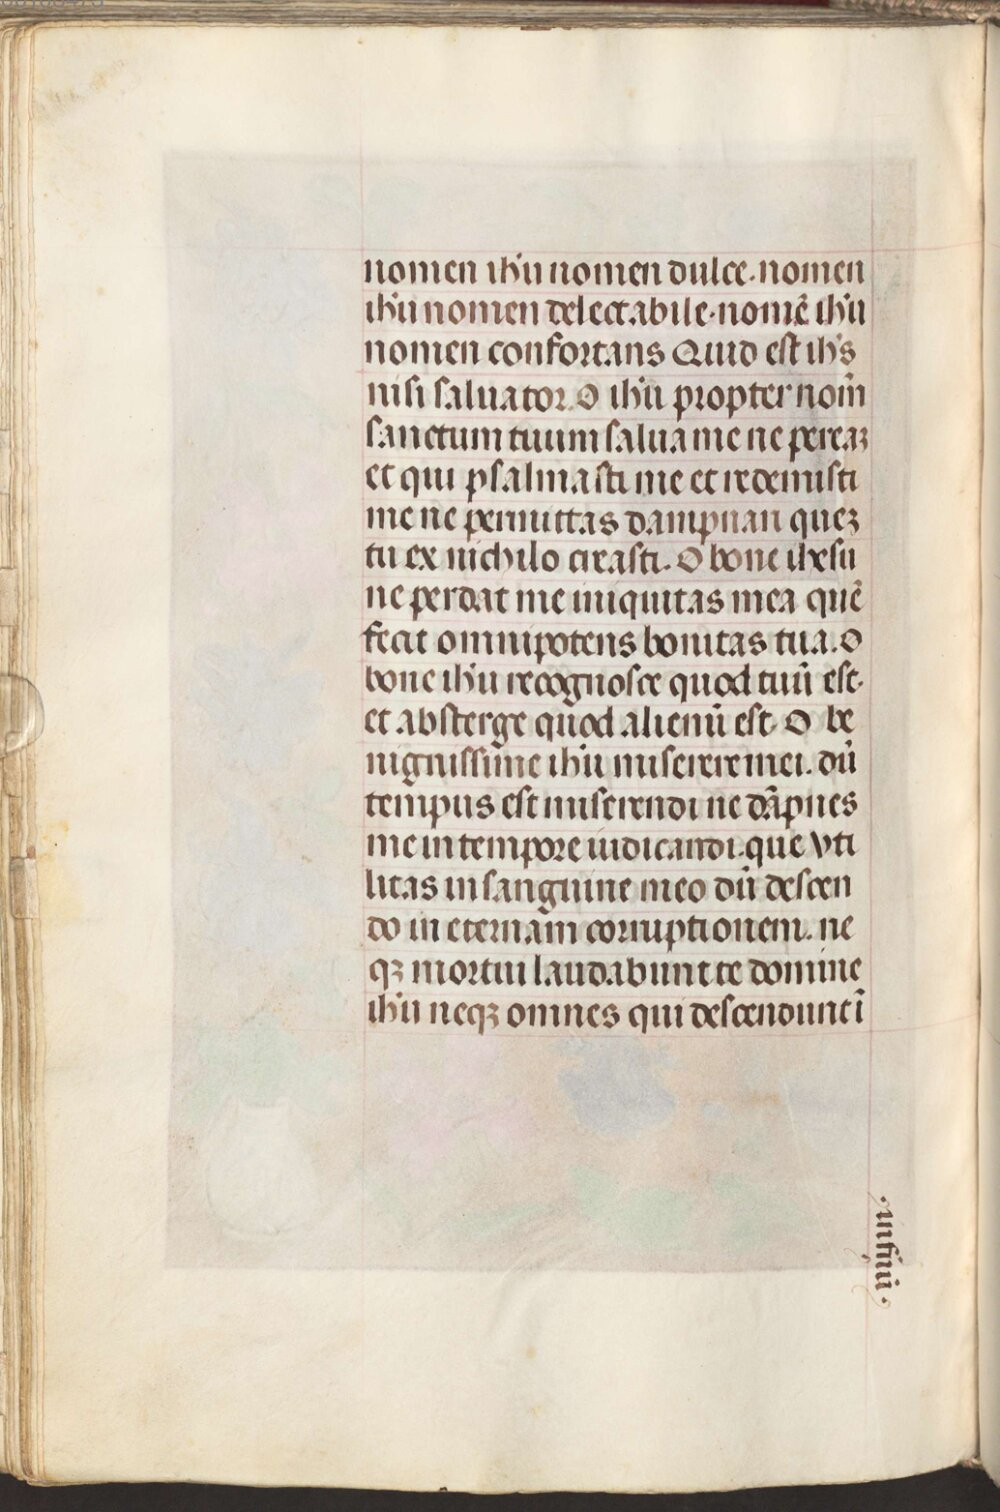 nomen ih'u nomen dulce. nomen
ih'u nomen delectabile. nomē ih'u
nomen confortans Quid est ih's
nisi saluator. O ih'u propter nom̄
sanctum tuum salua me ne pereaʒ
et qui psalmasti me et redemisti
me ne permittas dampnari queʒ
tu ex nichilo creasti. O bone ihesu
ne perdat me iniquitas mea quē
fecit omnipotens bonitas tua. O
bone ih'u recognosce quod tuū est.
et absterge quod alienū est. O be
nignissime ih'u miserere mei. dū
tempus est miserendi ne dāpnes
me in tempore iudicandi. que vti
litas in sanguine meo dū descen
do in eternam corruptionem. ne
qʒ mortui laudabunt te domine
ih'u neqʒ omnes qui descendunt ī